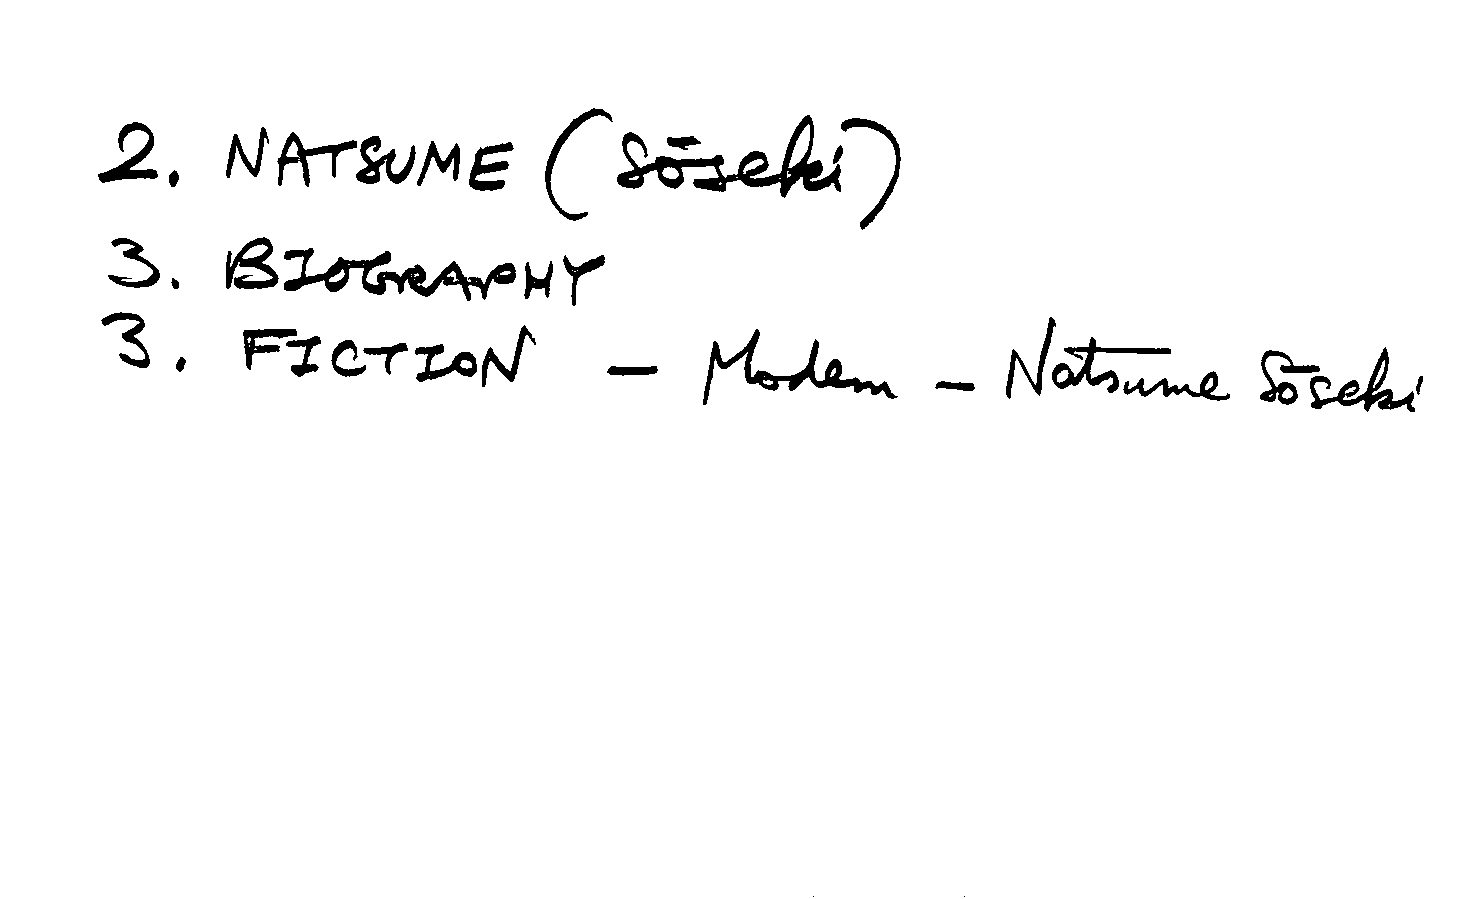 2. NATSUME (Sōseki)
3. BIOGRAPHY
3. FICTION - Modern - Natsume Sōseki